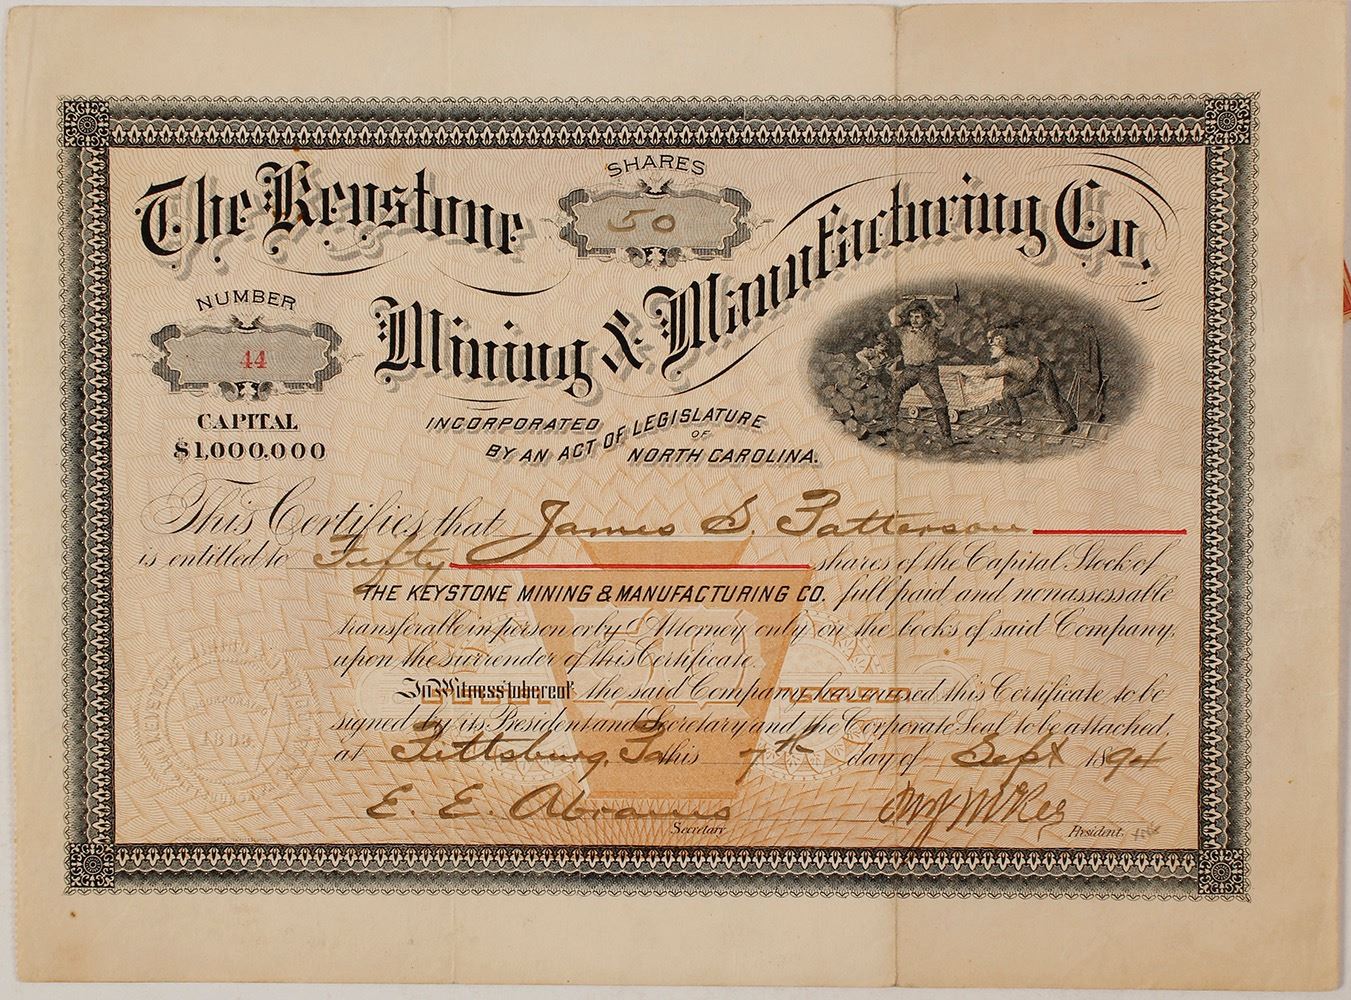 SHARES
50
The Keystone
Mining & Manufacturing Co.
NUMBER
44
CAPITAL
$1,000,000
INCORPORATED
BY AN ACT OF LEGISLATURE
OF
NORTH CAROLINA.
This Certifies that James S. Patterson
is entitled to Fifty shares of the Capital Stock of
THE KEYSTONE MINING & MANUFACTURING CO. full paid and nonassessable
transferable in person or by Attorney only on the books of said Company,
upon the surrender of this Certificate.
In Witness whereof the said Company has caused this Certificate to be
signed by its President and Secretary and the Corporate Seal to be attached,
at Pittsburg, Pa this 7th day of Sept 1894
E. E. Abrams
Secretary.
President.